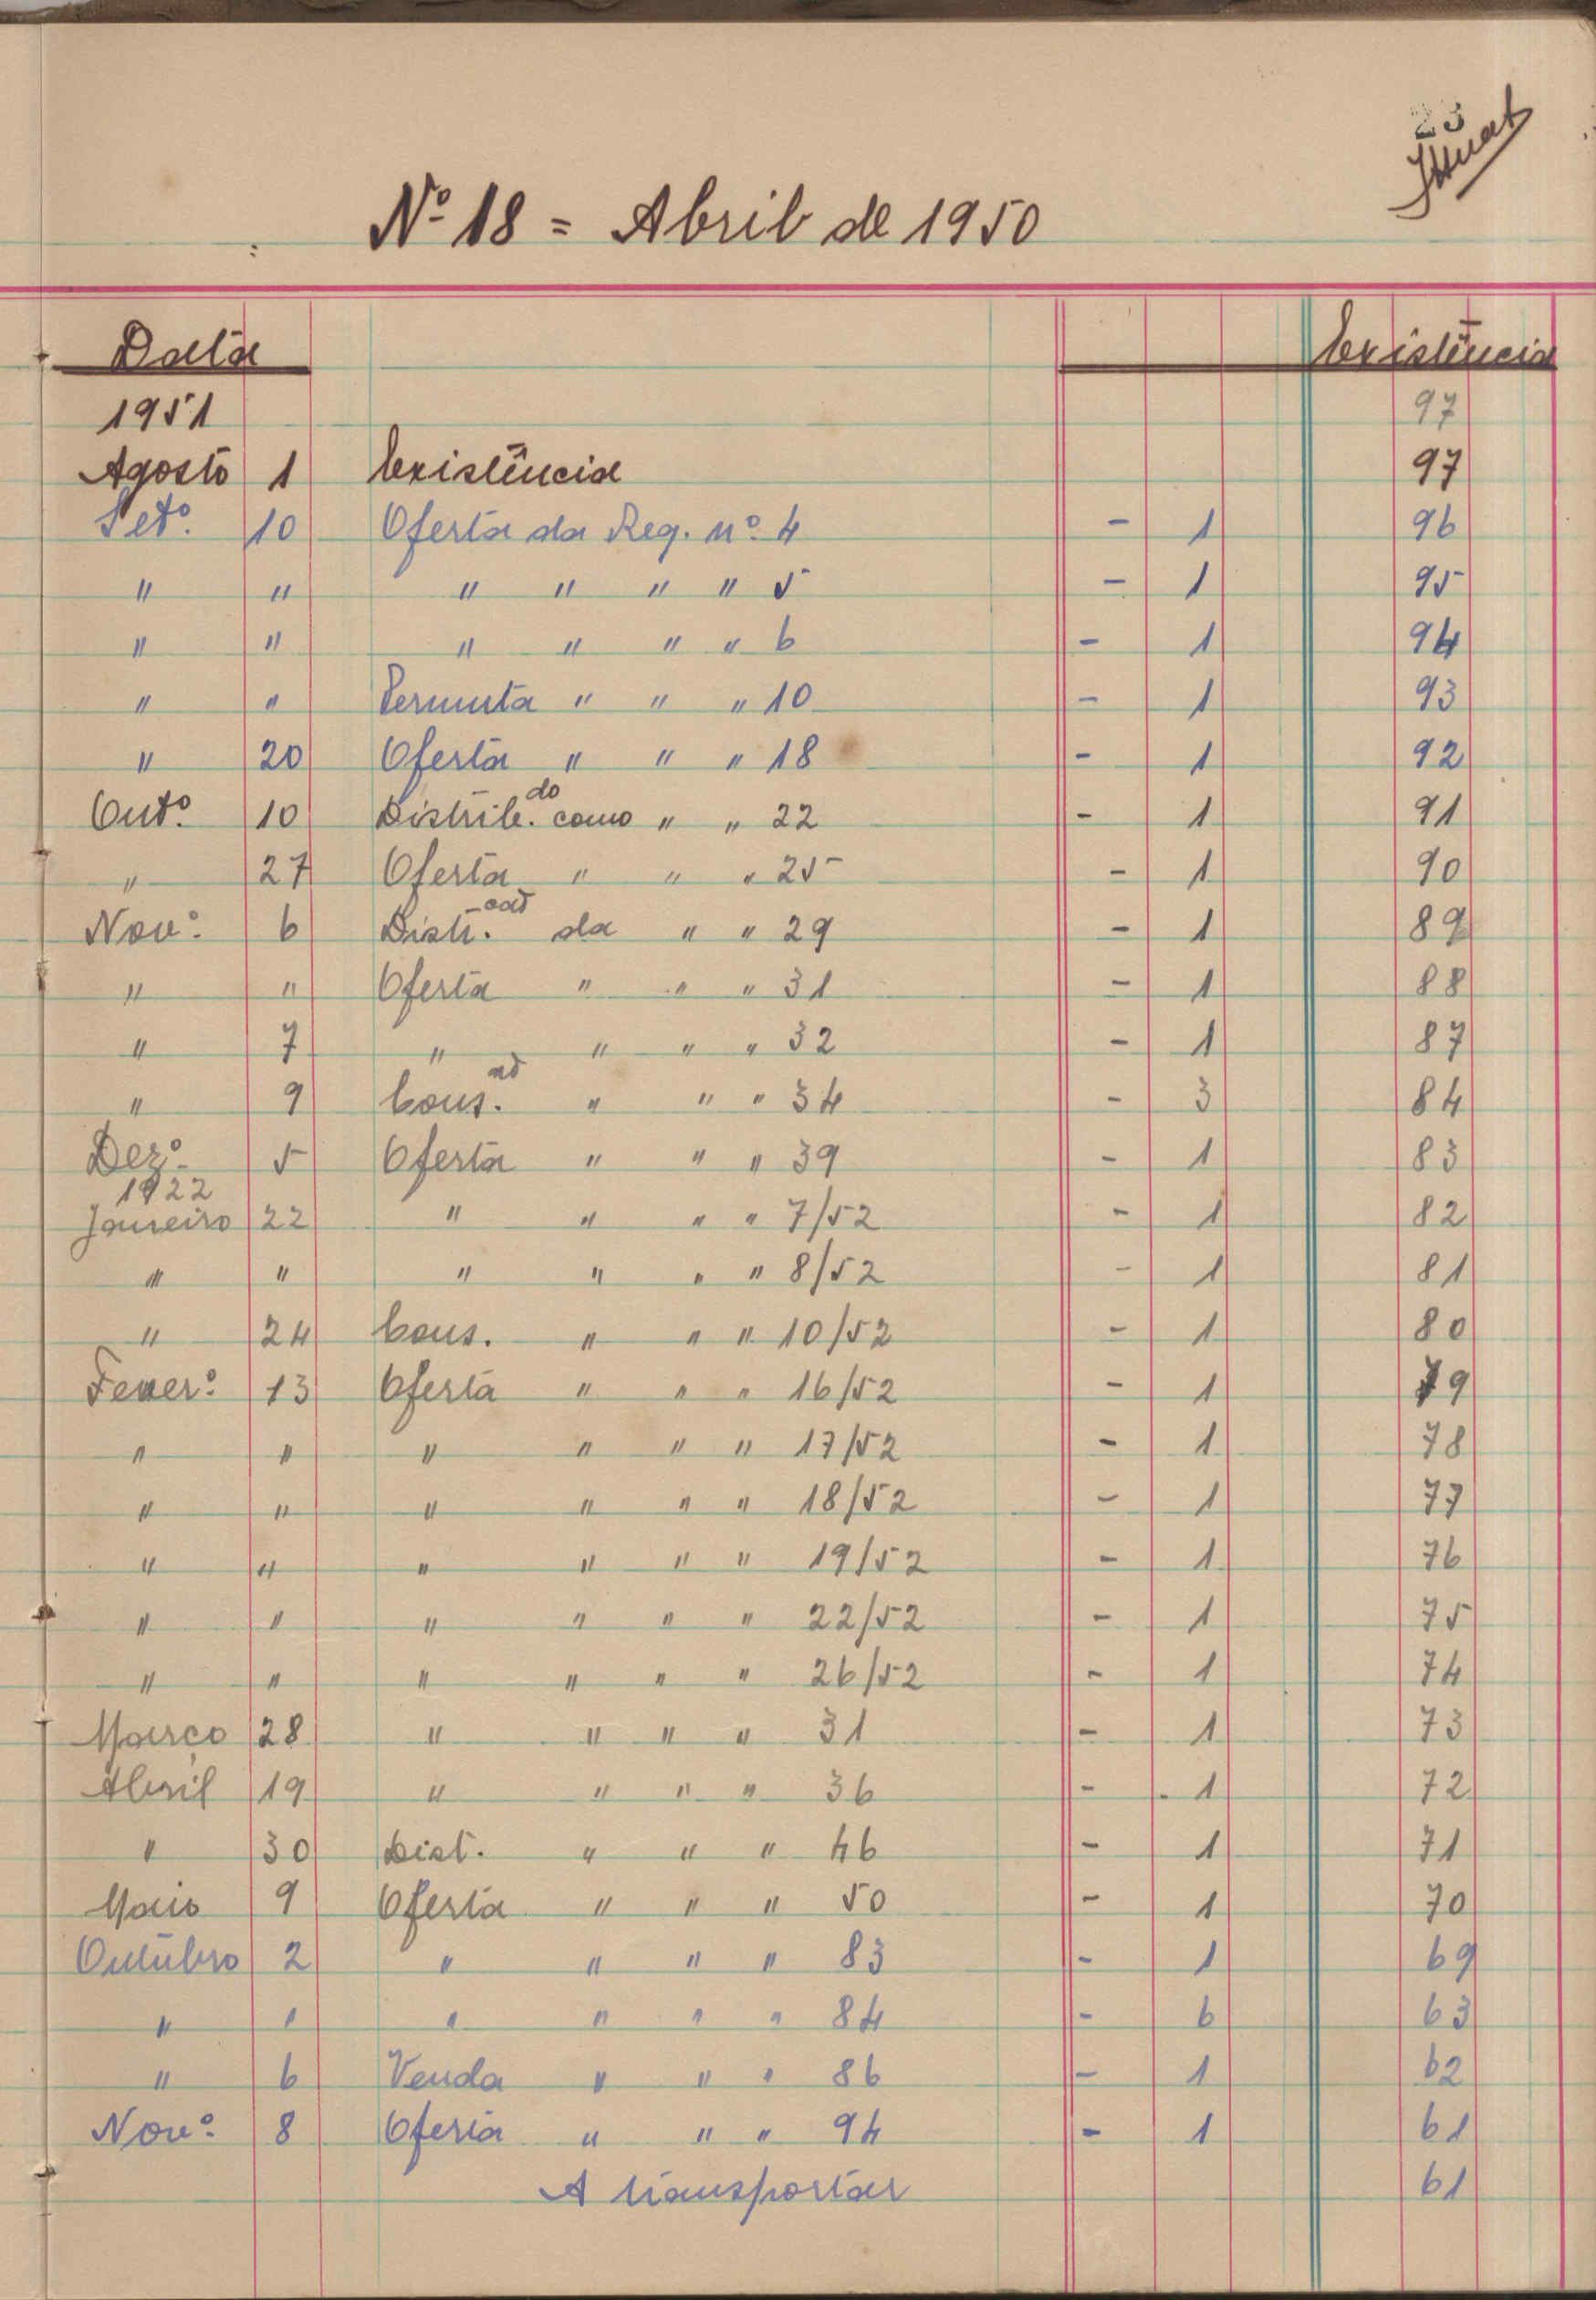 23
Nº 18 = Abril de 1950
Data Existência
1951 97
Agosto 1 Existência 97
Setº. 10 Oferta da Req. nº. 4 - 1 96
" " " " " " 5 - 1 95
" " " " " " 6 - 1 94
" " Permuta " " " 10 - 1 93
" 20 Oferta " " " 18 - 1 92
Outº. 10 Distrib.do como " " 22 - 1 91
" 27 Oferta " " " 25 - 1 90
Novº. 6 Distr. da " " 29 - 1 89
" " Oferta " " " 31 - 1 88
" 7 " " " " 32 - 1 87
" 9 Cons. " " " 34 - 3 84
Dezº. 5 Oferta " " " 39 - 1 83
1922
Janeiro 22 " " " " 7/52 - 1 82
" " " " " " 8/52 - 1 81
" 24 Cons. " " " 10/52 - 1 80
Feverº. 13 Oferta " " " 16/52 - 1 79
" " " " " " 17/52 - 1 78
" " " " " " 18/52 - 1 77
" " " " " " 19/52 - 1 76
" " " " " " 22/52 - 1 75
" " " " " " 26/52 - 1 74
Março 28 " " " " 31 - 1 73
Abril 19 " " " " 36 - 1 72
" 30 Dist. " " " 46 - 1 71
Maio 9 Oferta " " " 50 - 1 70
Outubro 2 " " " " 83 - 1 69
" " " " " " 84 - 6 63
" 6 Venda " " " 86 - 1 62
Novº. 8 Oferta " " " 94 - 1 61
A transportar 61